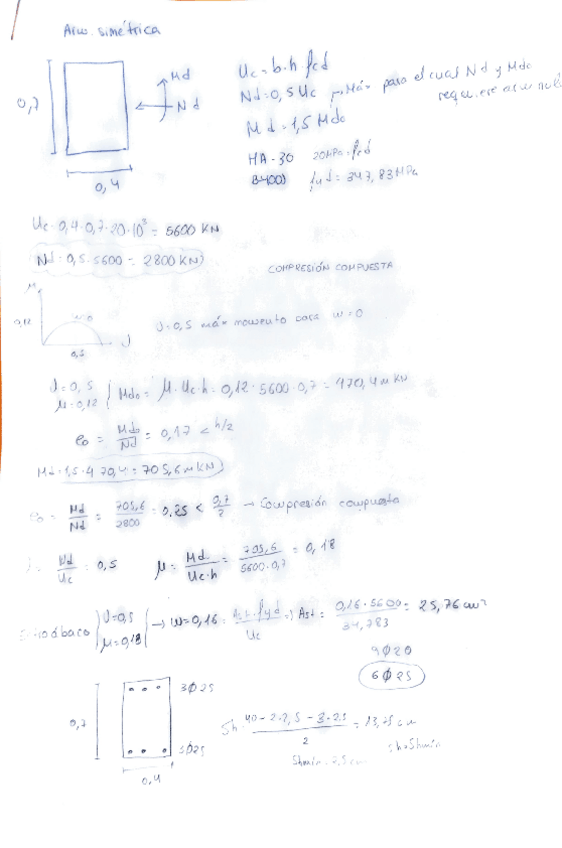 Arm. simétrica
Uc = b·h fcd
Md
Nd = 0,5 Uc Máx para el cual Nd y Mdo
Nd
requiere arm nula
0,7
Md = 1,5 Mdo
HA-30 20MPa = fcd
0,4
B400S fyd = 347,83MPa
Uc = 0,4·0,7·20·10³ = 5600 KN
Nd = 0,5·5600 = 2800 KN
COMPRESIÓN COMPUESTA
μ
w=0
0,12
0,5
J=0,5 máx momento para w=0
J=0,5
μ=0,12
Mdo = μ·Uc·h = 0,12·5600·0,7 = 470,4 m KN
eo = Mdo/Nd = 0,17 < h/2
Md = 1,5·470,4 = 705,6 m KN
eo = Md/Nd = 705,6/2800 = 0,25 < 0,7/2 → Compresión compuesta
J = Nd/Uc = 0,5 μ = Md/Uc·h = 705,6/5600·0,7 = 0,18
ábaco J=0,5 μ=0,18 → w=0,16 = As·fyd/Uc => Ast = 0,16·5600/34,783 = 25,76 cm²
9Ø20
6Ø25
3Ø25
0,7
Sh = 40-2·2,5-3·2,5/2 = 13,75 cm
3Ø25
Sh>Shmin
0,4
Shmin = 2,5 cm